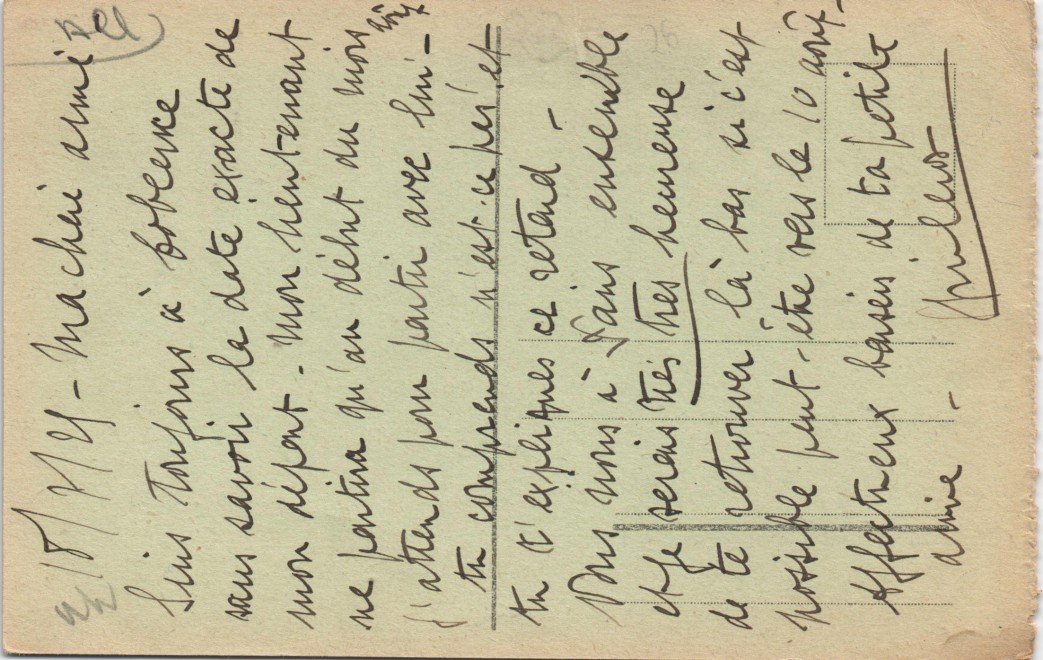 18/7/24 - Mon cheri ami
Suis toujours à Coblence
sans savoir la date exacte de
mon départ. mon lieutenant
ne partira qu'au début du mois
j'attends pour partir avec lui -
tu comprends n'est-ce pas! et
tu t'expliques ce retard -
nous à Paris ensemble
et je serais très très heureuse
de te retrouver là bas si c'est
possible peut-être vers le 10 août -
Affectueux baisers de ta petite
amie -